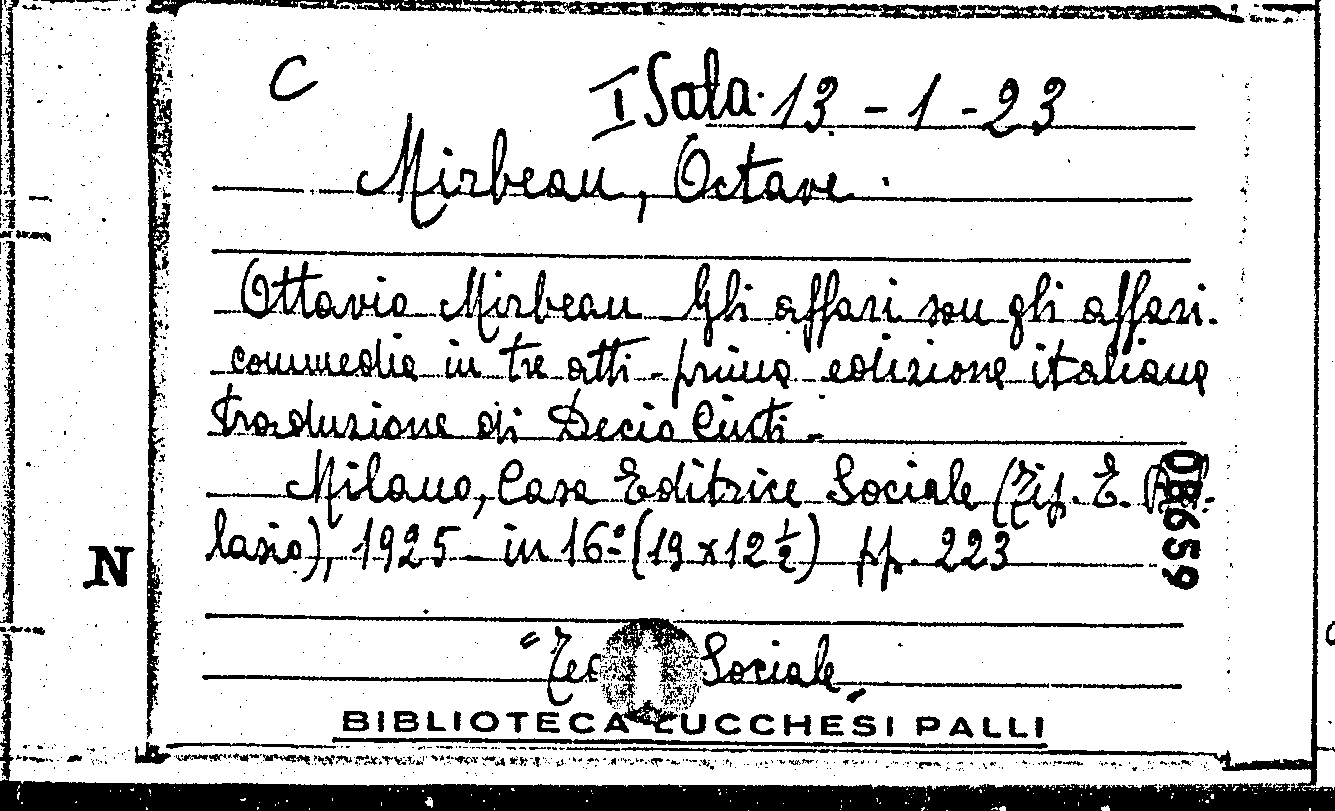 C
I Sala. 13 - 1 - 23
Mirbeau, Octave.
Ottavio Mirbeau Gli affari son gli affari.
commedia in tre atti - prima edizione italiana
traduzione di Decio Cinti -
Milano, Casa Editrice Sociale (Tip. E.
lasio), 1925 - in 16º (19 x 12 ½) pp. 223
N
089659
" Sociale "
BIBLIOTECA LUCCHESI PALLI